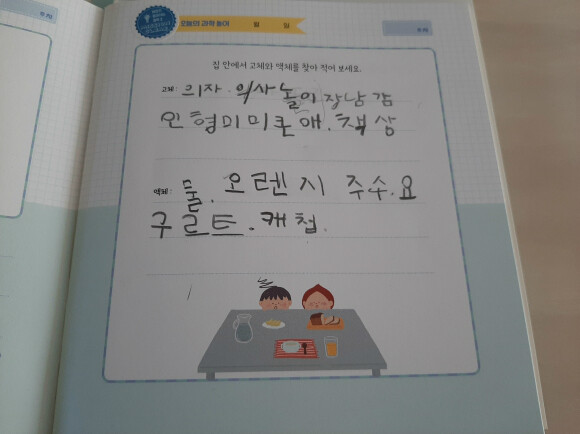 오늘의 과학 놀이 월 일
집 안에서 고체와 액체를 찾아 적어 보세요.
고체: 의자. 의사놀이 장남감
인형미미콘애.책상
액체: 물. 오렌지 주수.요
구르트.캐첩.